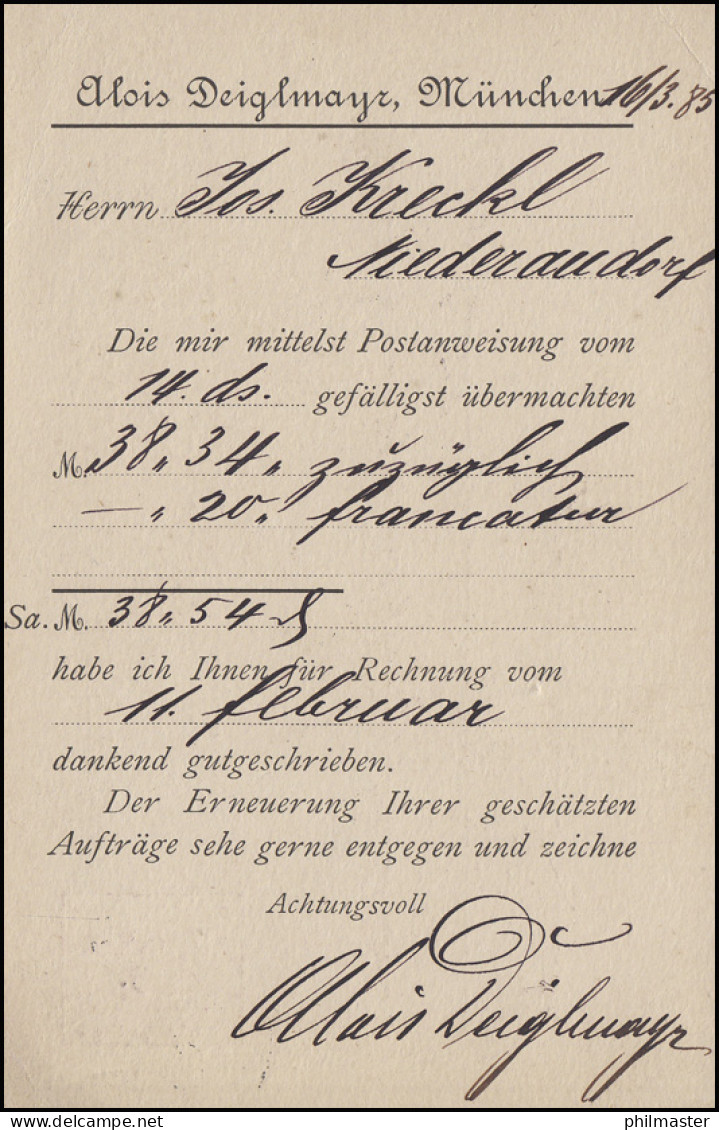 Alois Deiglmayr, München 16/3. 85
Herrn Jos. Kreckl
Niederaudorf
Die mir mittelst Postanweisung vom
14. ds. gefälligst übermachten
M. 38 „ 34 „ zuzüglich
— „ 20 „ francatur
Sa. M. 38 „ 54 ₰
habe ich Ihnen für Rechnung vom
11. februar
dankend gutgeschrieben.
Der Erneuerung Ihrer geschätzten
Aufträge sehe gerne entgegen und zeichne
Achtungsvoll
Alois Deiglmayr
philmaster